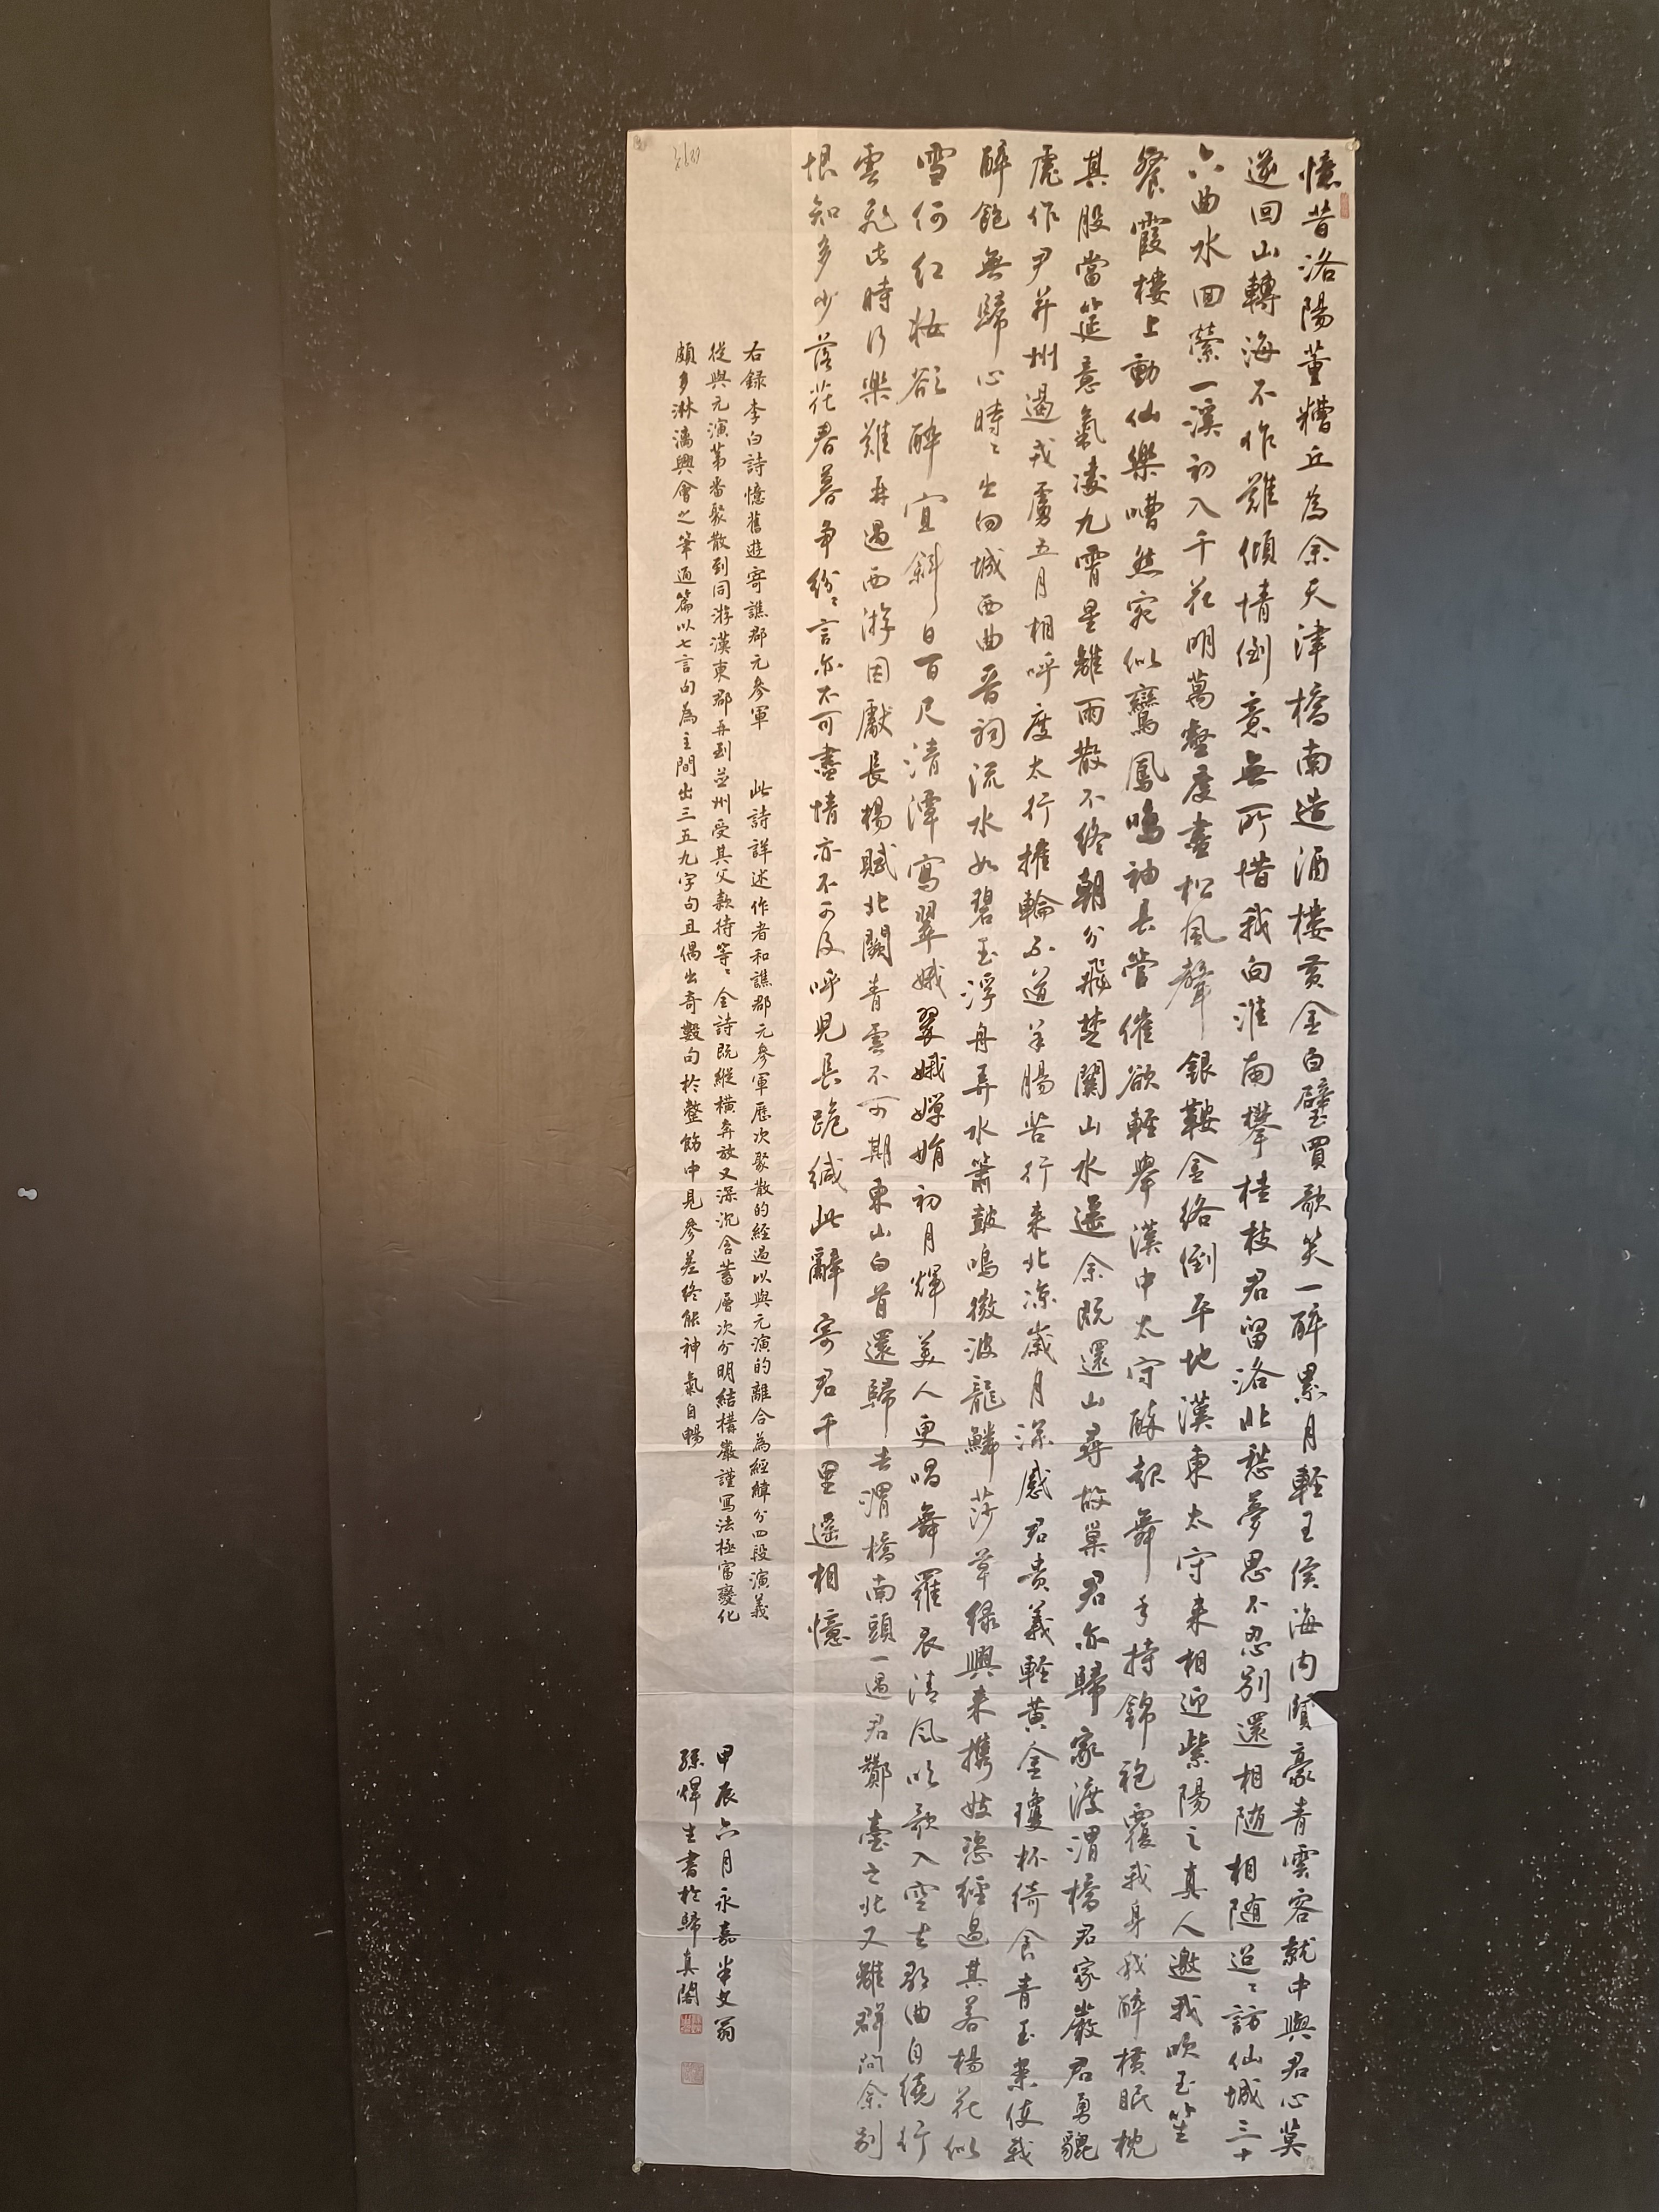 憶昔洛陽董糟丘為余天津橋南造酒樓黃金白璧買歌笑一醉累月輕王侯海內賢豪青雲客就中與君心莫
逆回山轉海不作難傾情倒意無所惜我向淮南攀桂枝君留洛北愁夢思不忍別還相隨相隨迢〻訪仙城三十
六曲水回縈一溪初入千花明萬壑度盡松風聲銀鞍金絡倒平地漢東太守來相迎紫陽之真人邀我吹玉笙
餐霞樓上動仙樂嘈然宛似鸞鳳鳴袖長管催欲輕舉漢中太守醉起舞手持錦袍覆我身我醉橫眠枕
其股當筵意氣凌九霄星離雨散不終朝分飛楚關山水遙余既還山尋故巢君亦歸家渡渭橋君家嚴君勇貔
虎作尹并州遏戎虜五月相呼度太行摧輪不道羊腸苦行來北涼歲月深感君貴義輕黃金瓊杯綺食青玉案使我
醉飽無歸心時〻出向城西曲晉祠流水如碧玉浮舟弄水簫鼓鳴微波龍鱗莎草綠興來攜妓恣經過其若楊花似
雪何紅妝欲醉宜斜日百尺清潭寫翠娥翠娥嬋娟初月輝美人更唱舞羅衣清風吹歌入空去歌曲自繞行
雲飛此時行樂難再遇西游因獻長楊賦北闕青雲不可期東山白首還歸去渭橋南頭一遇君酇臺之北又離群問余別
恨知多少落花春暮爭紛〻言亦不可盡情亦不可及呼兒長跪緘此辭寄君千里遙相憶
右錄李白詩憶舊遊寄譙郡元參軍 此詩詳述作者和譙郡元參軍歷次聚散的經過以與元演的離合為經緯分四段演義
從與元演第番聚散到同游漢東郡再到並州受其父款待等〻全詩既縱橫奔放又深沉含蓄層次分明結構嚴謹寫法極富變化
頗多淋漓興會之筆通篇以七言句為主間出三五九字句且偶出奇數句於整飭中見參差終能神氣自暢
甲辰六月永嘉半文翁
孫焊生書於歸真閣